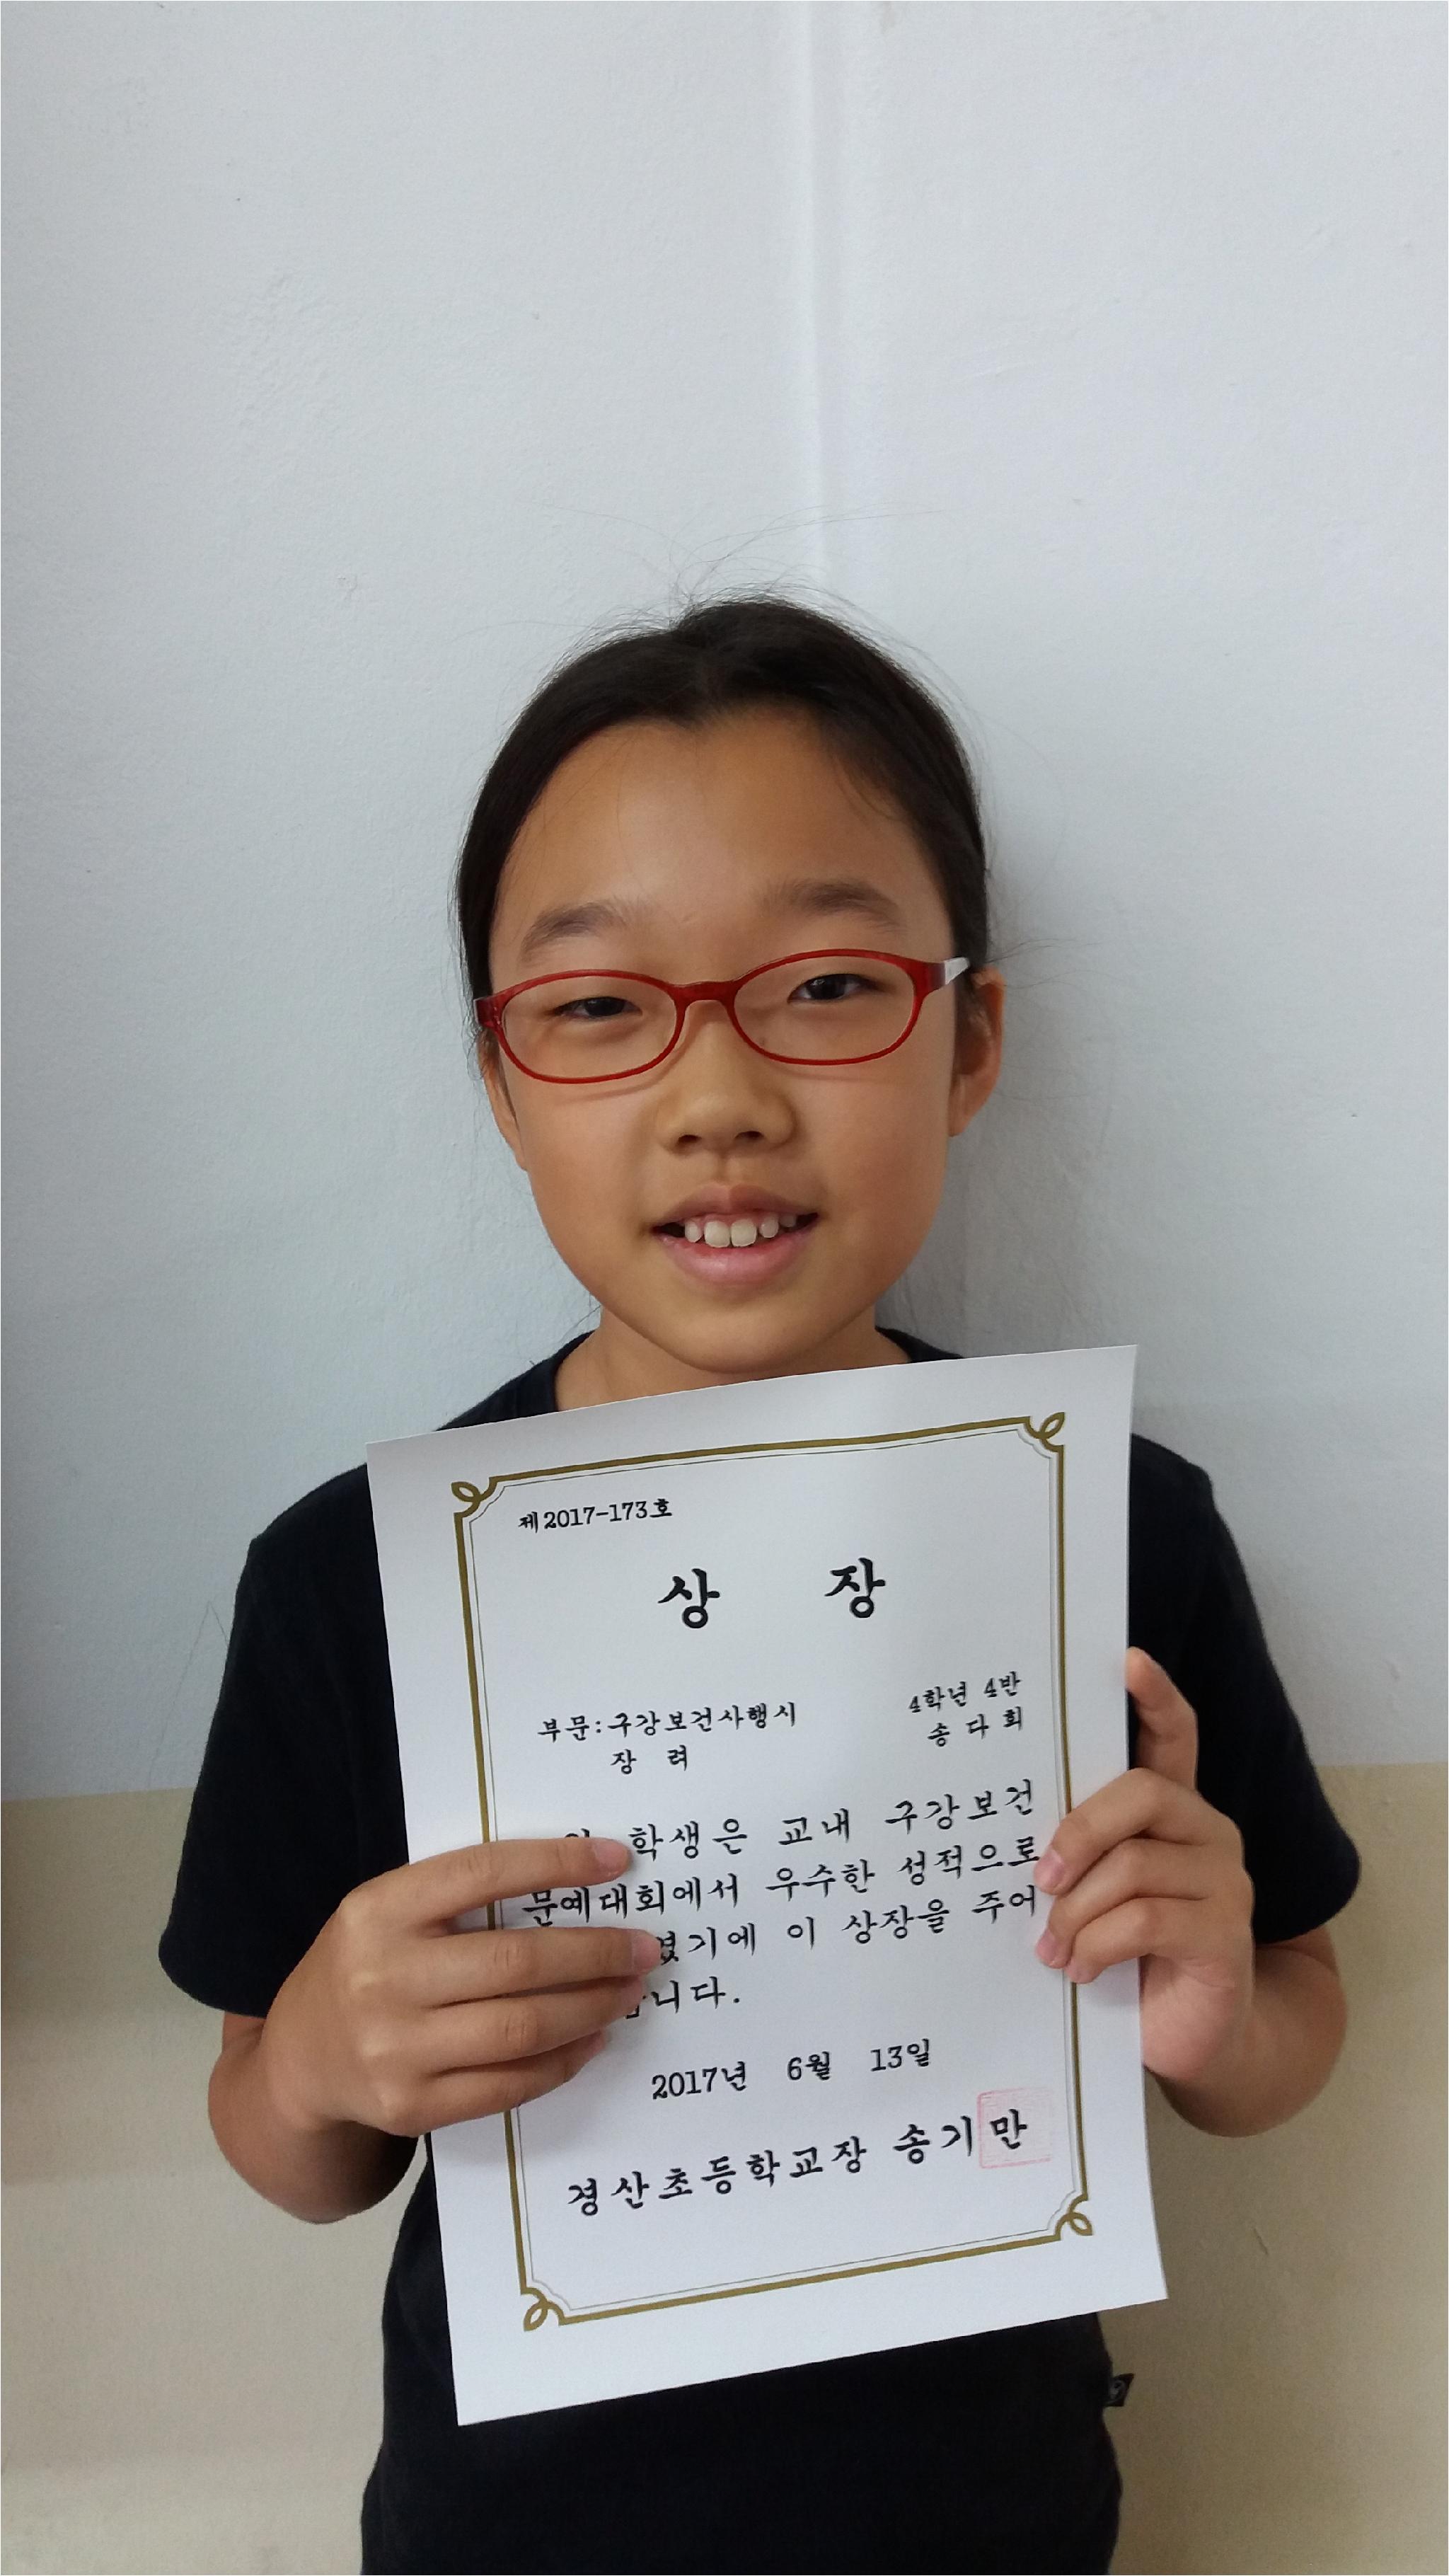 제2017-173호
상 장
4학년 4반
송 다 희
부문:구강보건사행시
장 려
학생은 교내 구강보건
문예대회에서 우수한 성적으로
기에 이 상장을 주어
니다.
2017년 6월 13일
경산초등학교장 송기만